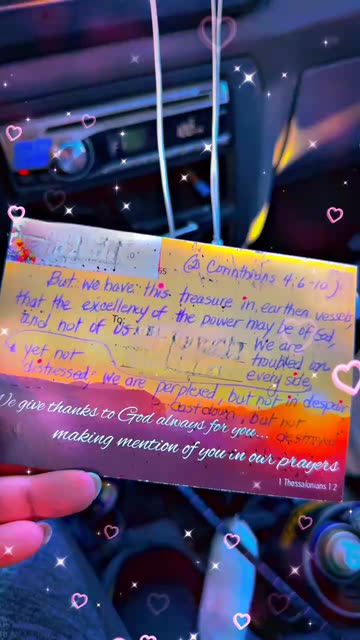 (2 Corinthians 4:6-10)
But we have this treasure in, earthen vessels,
that the excellency of the power may be of God,
and not of us. We are
troubled on
every side,
yet not
distressed; we are perplexed, but not in despair
cast down, but not
destroyed
We give thanks to God always for you...
making mention of you in our prayers
1 Thessalonians 1:2